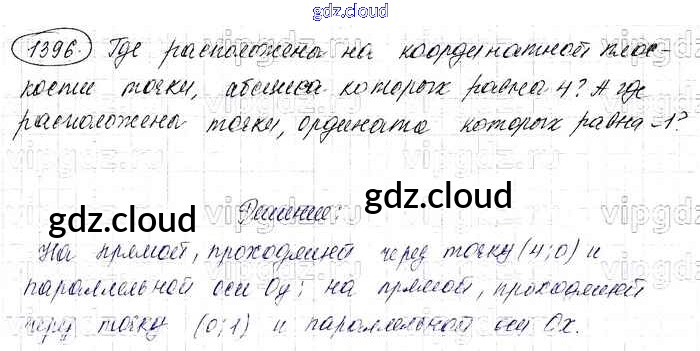 gdz.cloud
1396. Где расположены на координатной плос-
кости точки, абсцисса которых равна 4? А где
расположены точки, ордината которых равна -1?
gdz.cloud
gdz.cloud
Решение:
На прямой, проходящей через точку (4;0) и
параллельной оси Oy; на прямой, проходящей
через точку (0;1) и параллельной оси Ox.